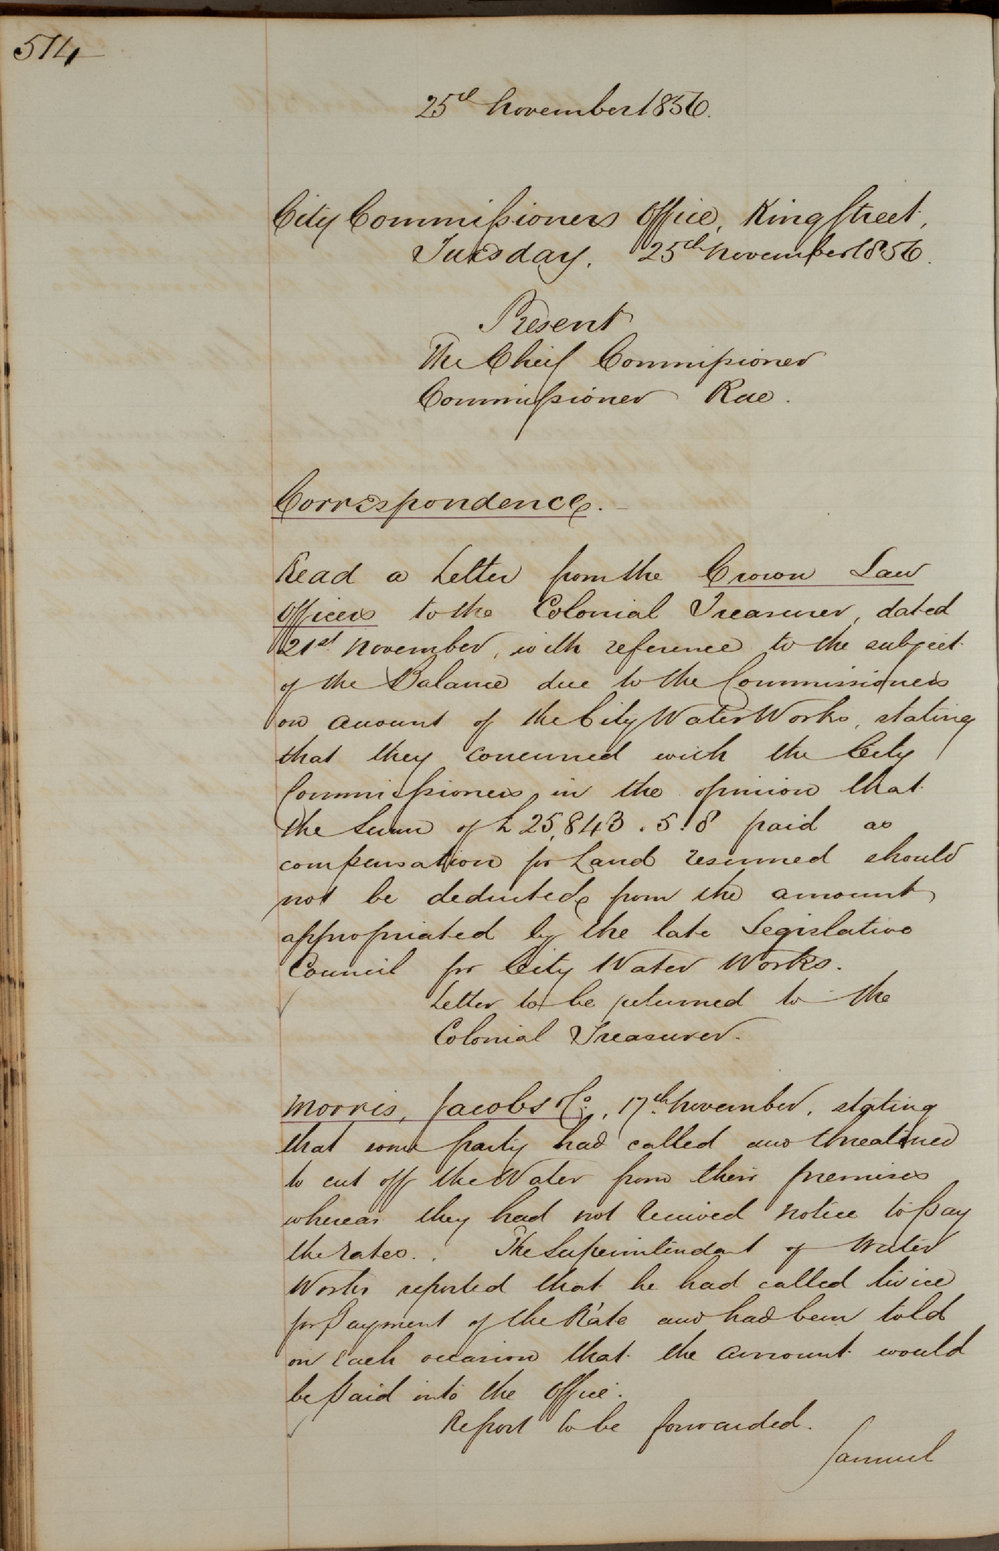 514
25th November 1856.
City Commissioners Office, King Street,
Tuesday, 25th November 1856.
Present
The Cheif Commissioner
Commissioner Rae.
Correspondence.
Read a Letter from the Crown Law
Officers to the Colonial Treasurer, dated
21st November, with reference to the subject
of the Balance due to the Commissioners
on account of the City Water Works, stating
that they concurred with the City
Commissioners in the opinion that
the Sum of £25,843.5.8 paid as
compensation for Land resumed should
not be deducted from the amount
appropriated by the late Legislative
Council for City Water Works.
Letter to be returned to the
Colonial Treasurer.
Morris, Jacobs & Co., 17th November, stating
that some party had called and threatened
to cut off the Water from their premises
whereas they had not received notice to pay
the rates. The Superintendant of Water
Works reported that he had called twice
for Payment of the Rate and had been told
on each occasion that the amount would
be paid into the Office.
Report to be forwarded.
Samuel